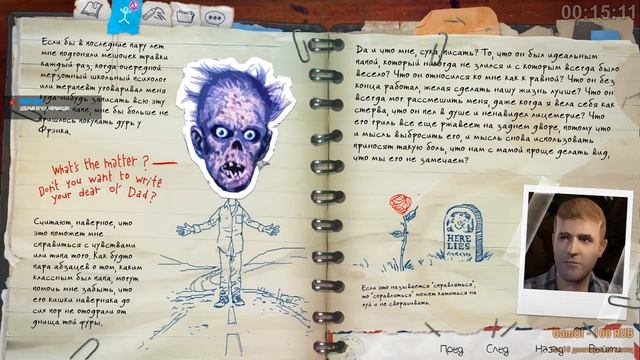 00:15:11
Если бы в последние пару лет
мне подгоняли мешочек травки
каждый раз, когда очередной
мерзотный школьный психолог
или терапевт уговаривал меня
куда-нибудь записать всю эту
папе, мне бы больше не
пришлось покупать дурь у
Фрэнка.
What's the matter?
Don't you want to write
your dear ol' Dad?
Считают, наверное, что
это поможет мне
справиться с чувствами
или типа того. Как будто
пара абзацев о том, каким
классным был папа, могут
помочь мне забыть, что
его кишки наверняка до
сих пор не отодрали от
днища той фуры.
Да и что мне, сука, писать? То, что он был идеальным
папой, который никогда не злился и с которым всегда было
весело? Что он относился ко мне как к равной? Что он без
конца работал, желая сделать нашу жизнь лучше? Что он
всегда мог рассмешить меня, даже когда я вела себя как
стерва, что он пел в душе и ненавидел лицемерие? Что
его гриль все еще ржавеет на заднем дворе, потому что
и мысль выбросить его, и мысль снова использовать
приносят такую боль, что нам с мамой проще делать вид,
что мы его не замечаем?
HERE
LIES
Если это называется "справляться",
то "справляться" может катиться на
хуй и не сворачивать.
GamOl - 100 RUB
Пред.
След.
Назад
Выйти